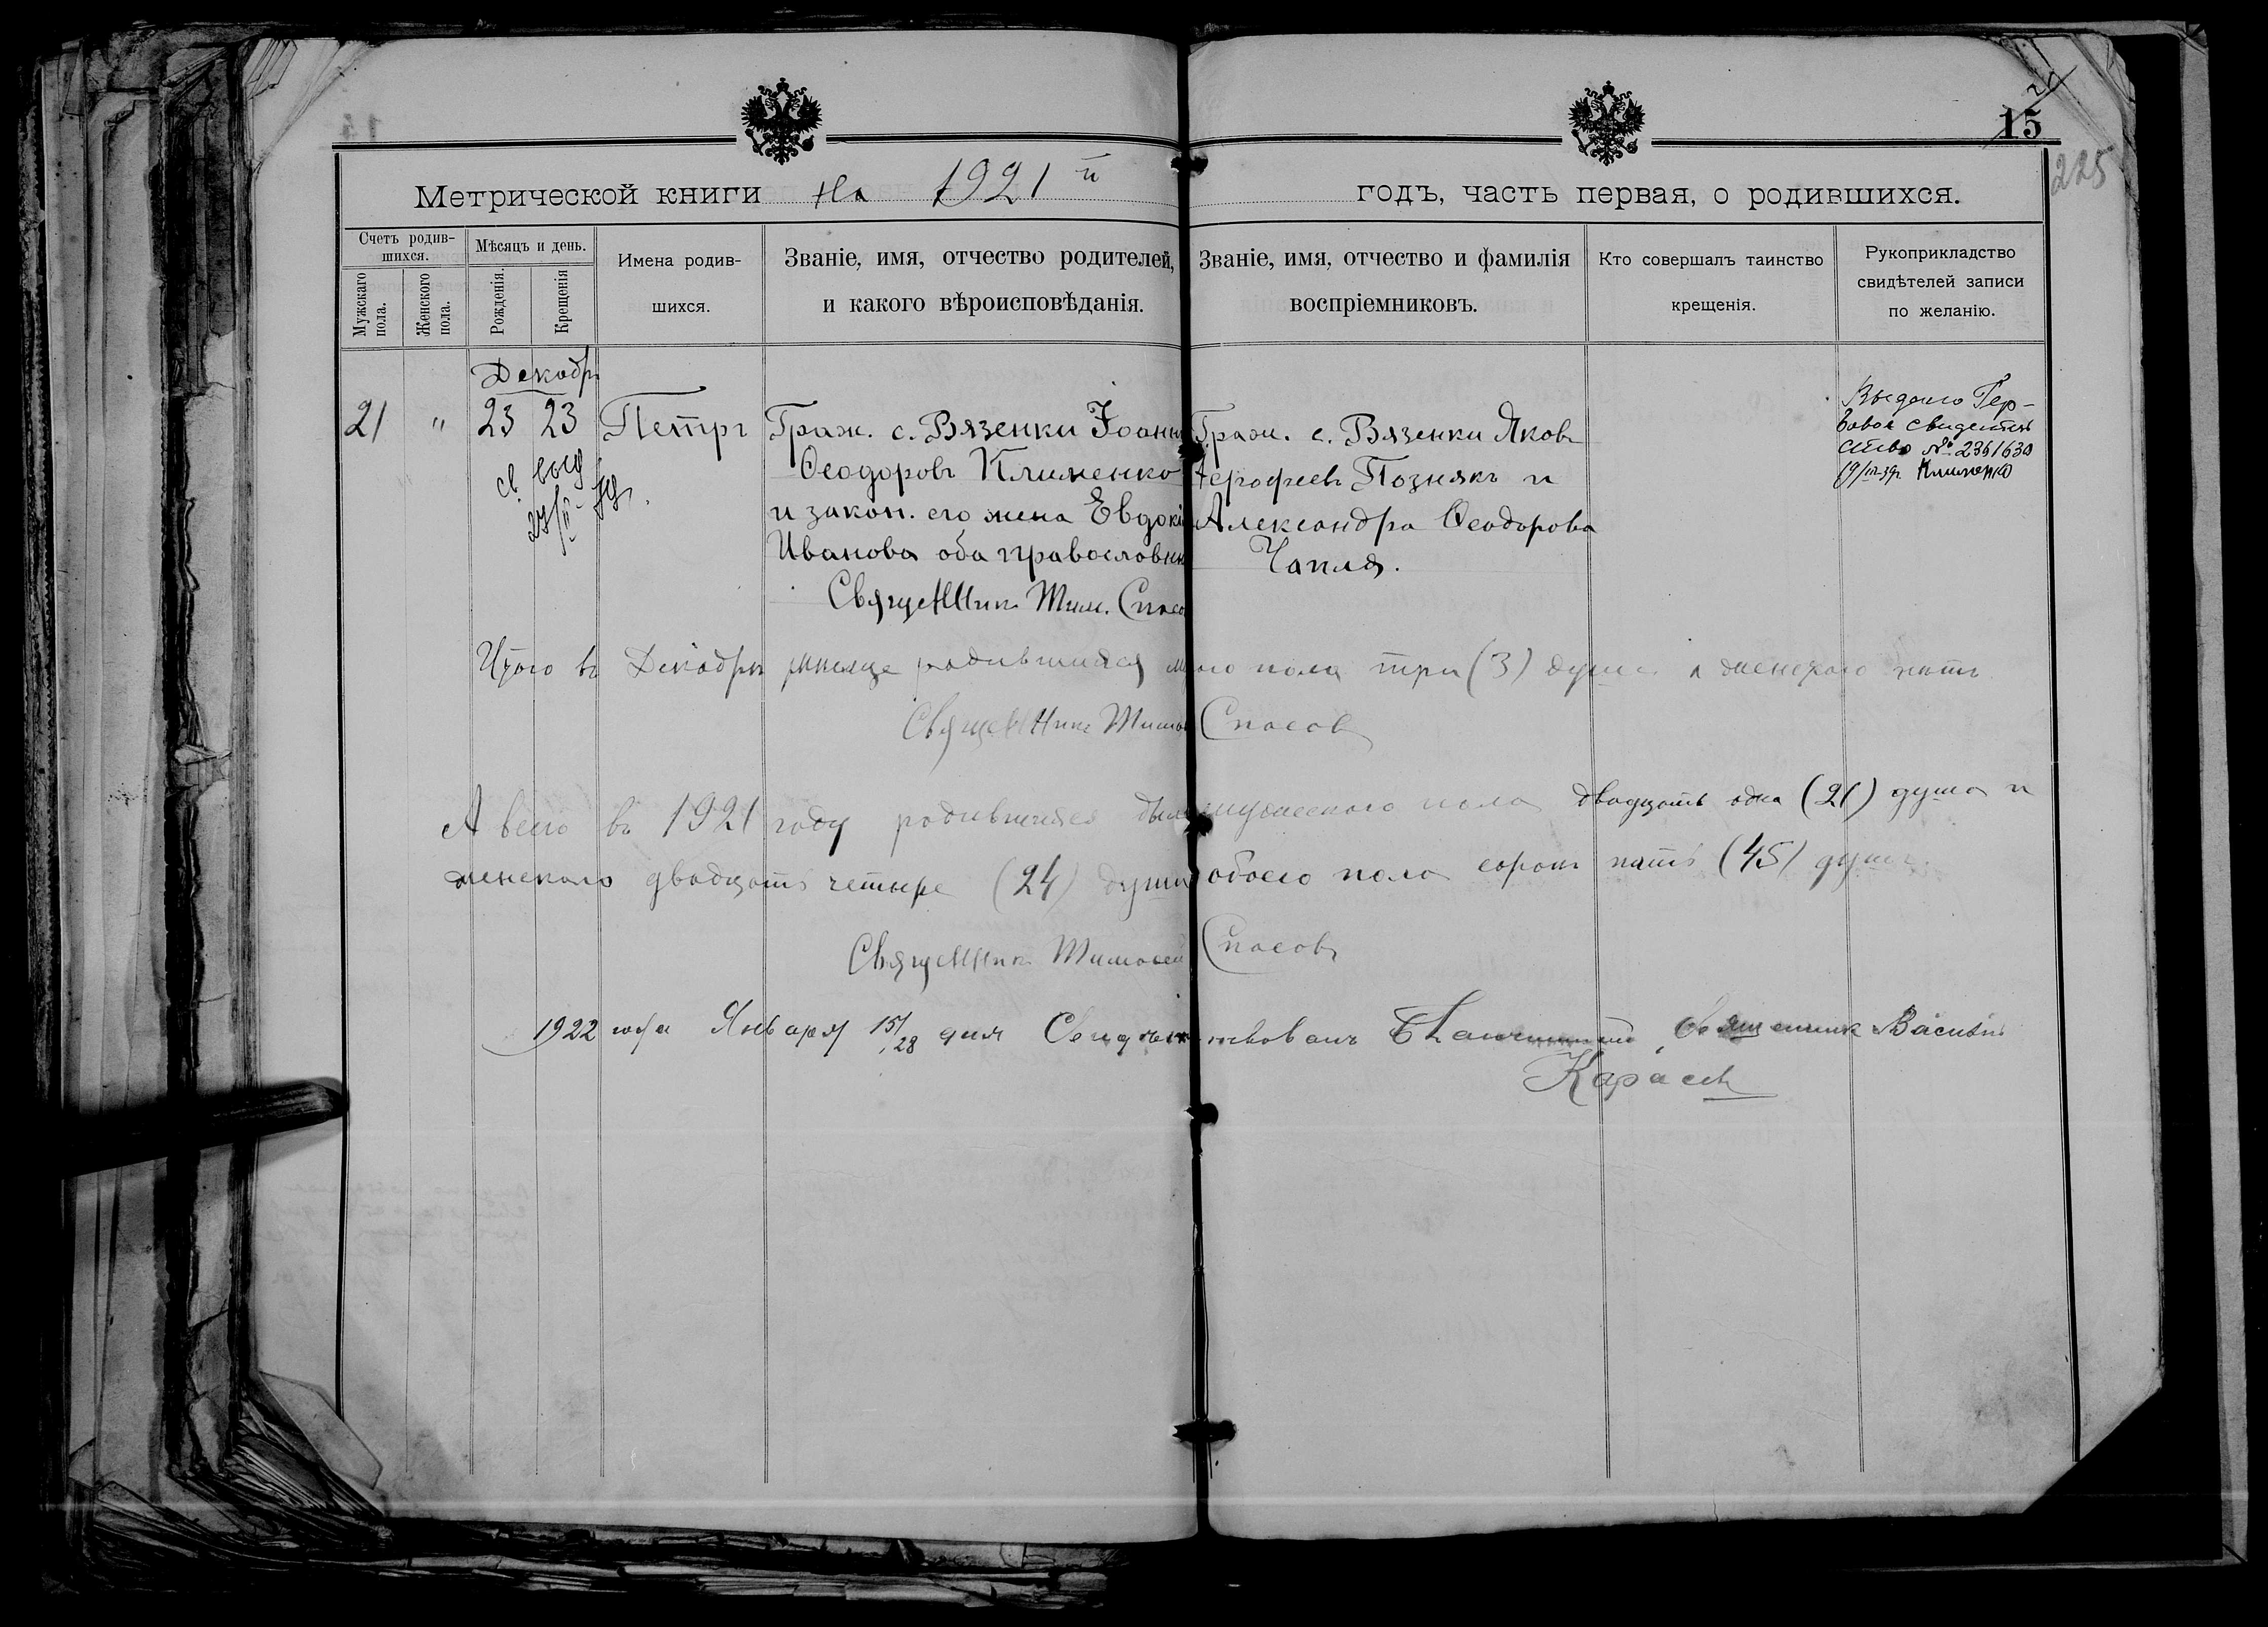 15
225
Метрической книги на 1921 й годъ, часть первая, о родившихся.
Счетъ родив-
шихся.
Мужскаго пола.
Женского пола.
Мѣсяцъ и день.
Рожденія.
Крещенія
Имена родив-
шихся.
Званіе, имя, отчество родителей,
и какого вѣроисповѣданія.
Званіе, имя, отчество и фамилія
воспріемниковъ.
Кто совершалъ таинство
крещенія.
Рукоприкладство
свидѣтелей записи
по желанію.
Декабрь
21 " 23 23 Петръ
Граж. с. Вязенки Іоаннъ
Ѳеодоровъ Клименко
и закон. его жена Евдокі
Иванова оба православн
Священникъ Тим. Спасо
Граж. с. Вязенки Яковъ
Іерофеевъ Познякъ и
Александра Ѳеодорова
Чапля.
Выдано Гер-
бовое свидетель
ство № 2361630
Клименко
св. выд
Итого въ Декабрѣ мѣсяце родившихся м ого пола три (3) души а женскаго нѣтъ
Священникъ Тимоѳ Спасов
А всего въ 1921 году родившихся было мужеского пола двадцать одна (21) душа и
женского двадцать четыре (24) души обоего пола сорокъ пять (45) душъ.
Священникъ Тимоѳей Спасовъ
1922 года Января 15/28 дня Священникъ Василій
Карасев